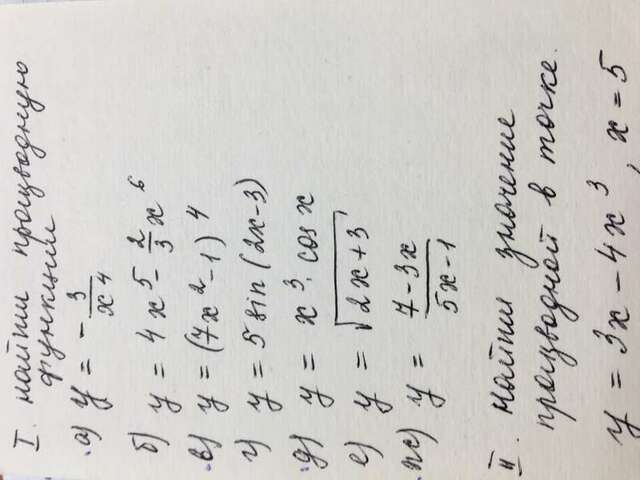 I. найти производную
функции
а) y = -3/x^4
б) y = 4x^5 - 2/3 x^6
в) y = (7x^2-1)^4
г) y = 5 sin (2x-3)
д) y = x^3 · cos x
е) y = √(2x+3)
ж) y = (7-3x)/(5x-1)
II. найти значение
производной в точке.
y = 3x - 4x^3, x = 5